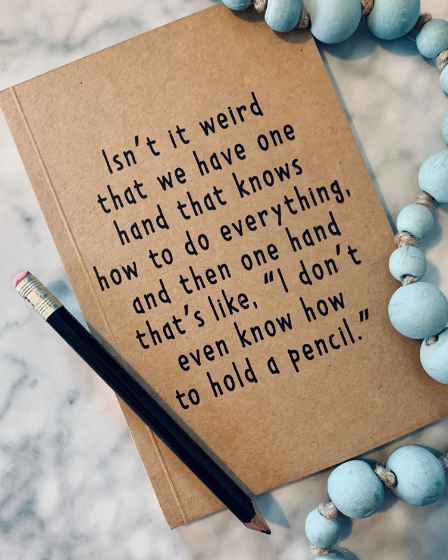 Isn't it weird
that we have one
hand that knows
how to do everything,
and then one hand
that's like, "I don't
even know how
to hold a pencil."